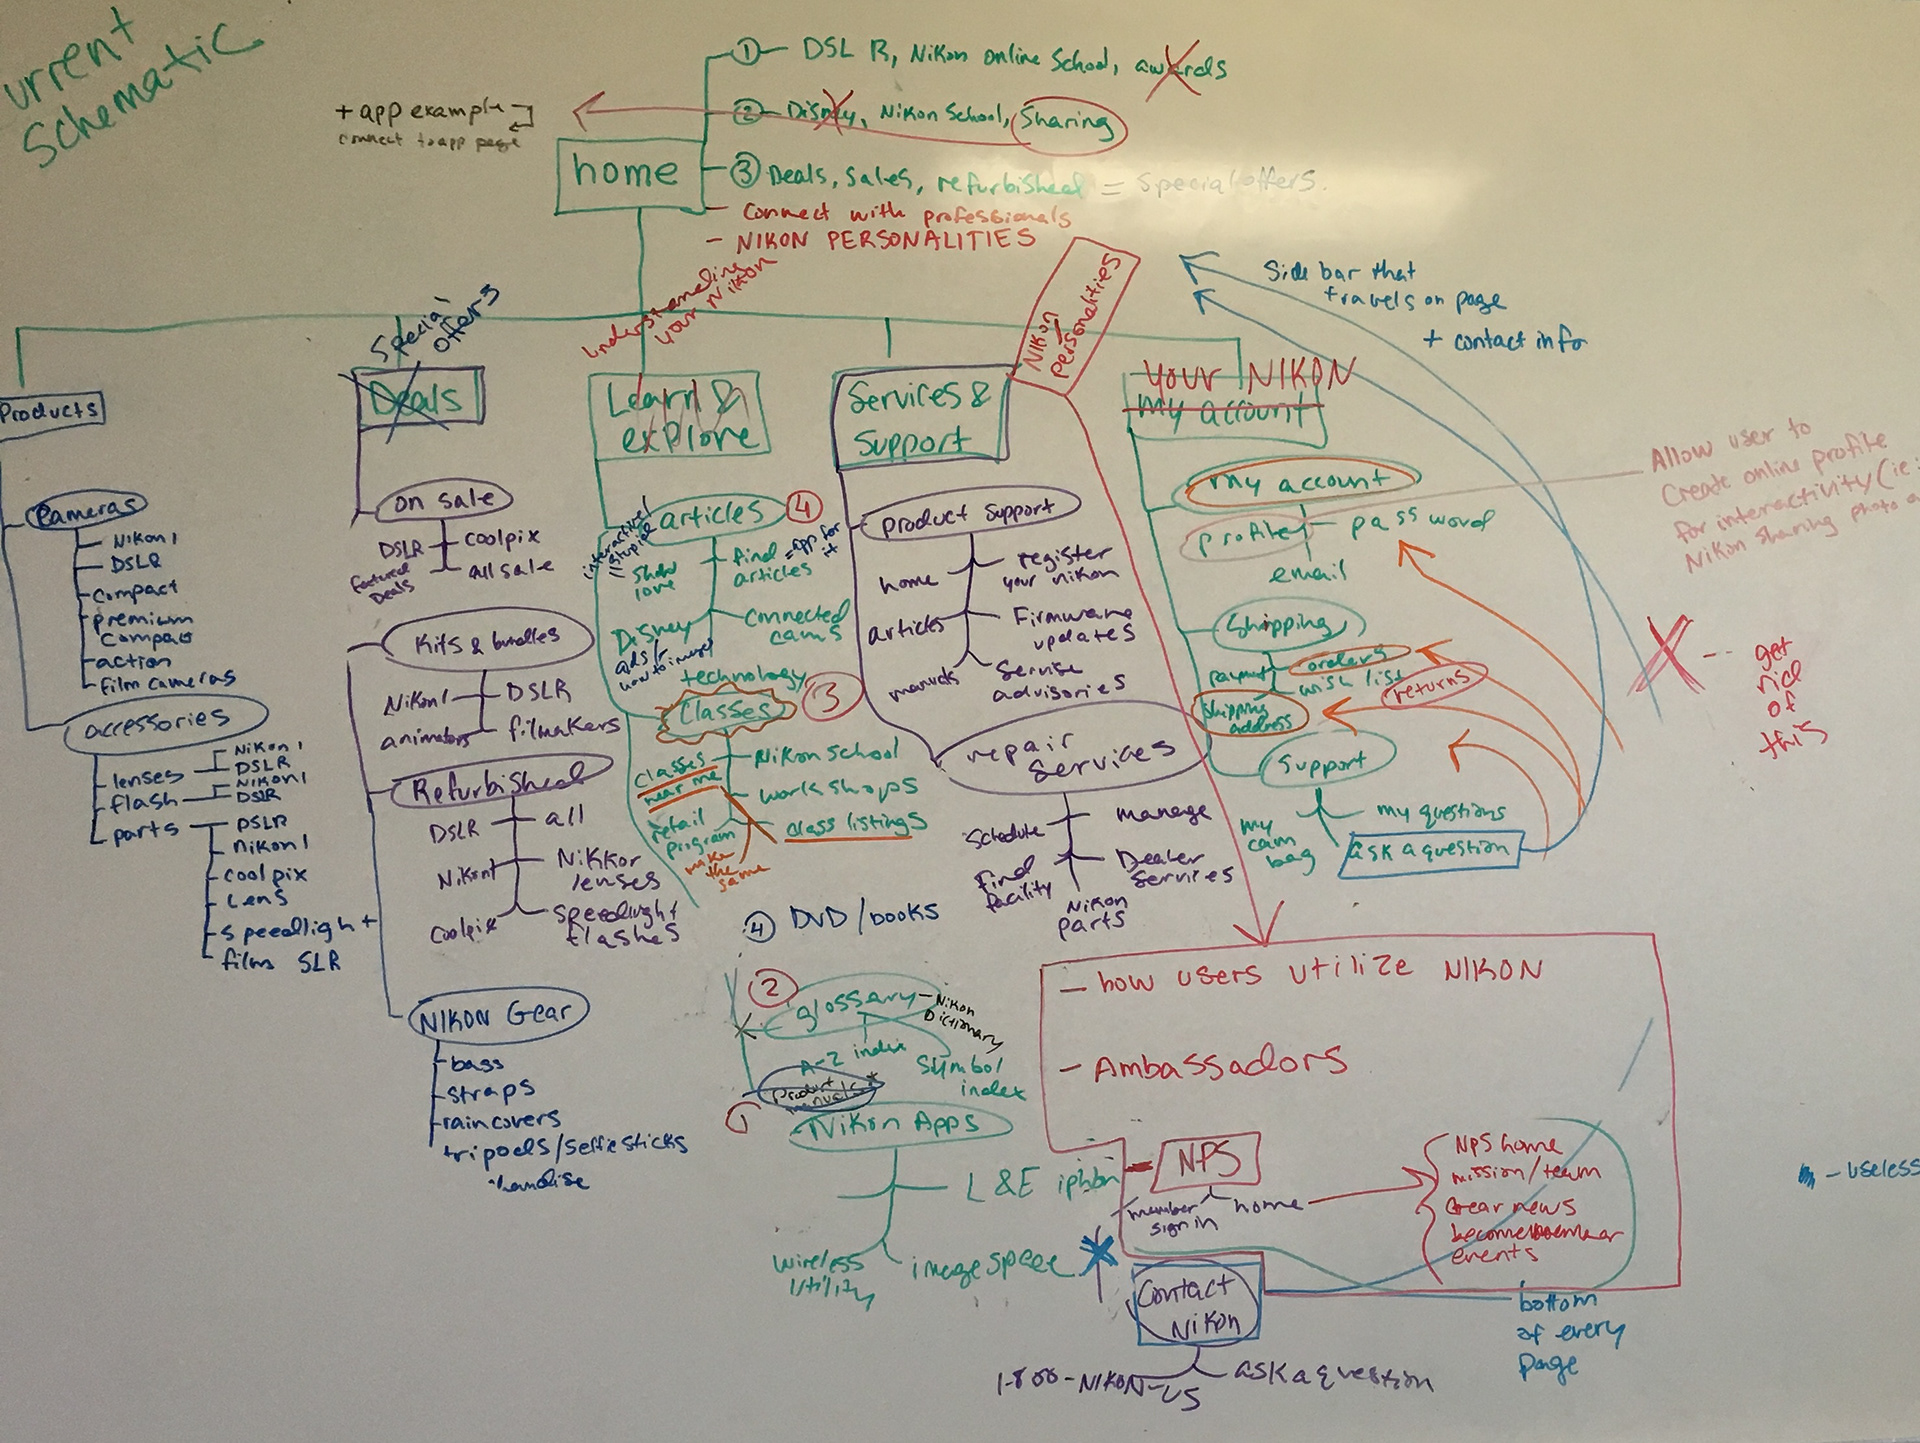 urrent
Schematic
① DSLR, Nikon online School, awards
② Disney, Nikon School, Sharing
③ Deals, sales, refurbished = special offers.
- Connect with professionals
- NIKON PERSONALITIES
+ app example
connect to app page
home
understanding
your Nikon
Nikon
personalities
Side bar that
travels on page
+ contact info
Products
Cameras
Nikon 1
DSLR
compact
premium
compac
action
film cameras
accessories
lenses
Nikon 1
DSLR
flash
Nikon 1
DSLR
parts
DSLR
Nikon 1
coolpix
Lens
speedlight
films SLR
Special
offers
Deals
on sale
DSLR
coolpix
featured
Deals
all sale
Kits & bundles
Nikon 1
DSLR
animators
filmakers
Refurbished
DSLR
all
Nikon 1
Nikkor
lenses
Coolpix
Speedlight
flashes
NIKON Gear
straps
raincovers
tripods/selfie sticks
Learn &
explore
articles ④
show
love
find
articles
= app for
it
Disney
ads/
how to images
connected
cams
technology
Classes ③
classes
near me
Nikon School
workshops
retail
program
class listings
make
the
same
④ DVD/books
② glossary - Nikon
Dictionary
A-Z index
Symbol
index
Product
manuals *
Nikon Apps
L & E iphon
wireless
utility
image space
Services &
Support
product Support
home
register
your nikon
articles
Firmware
updates
manuals
Service
advisories
repair
Services
Schedule
manage
find
facility
Dealer
Services
Nikon
parts
your NIKON
my account
my account
profile
password
email
Shipping
payment
orders
wish list
returns
shipping
address
Support
my questions
my
cam
bag
ask a question
Allow user to
Create online profile
for interactivity (ie:
Nikon Sharing photo a
X -- get
rid
of
this
- how users utilize NIKON
- Ambassadors
NPS
member
sign in
home
NPS home
mission/team
Gear news
become member
events
- useless
Contact
Nikon
1-800-NIKON-US
ask a question
bottom
of every
page